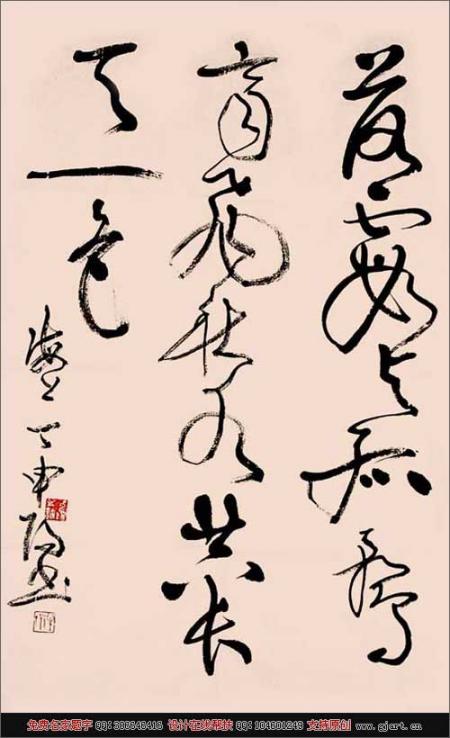 落霞与孤鹜
齐飞秋水共长
天一色
海上丁申阳书
免费名家题字 QQ: 设计在线帮扶 QQ: 支持原创 www.gjart.cn